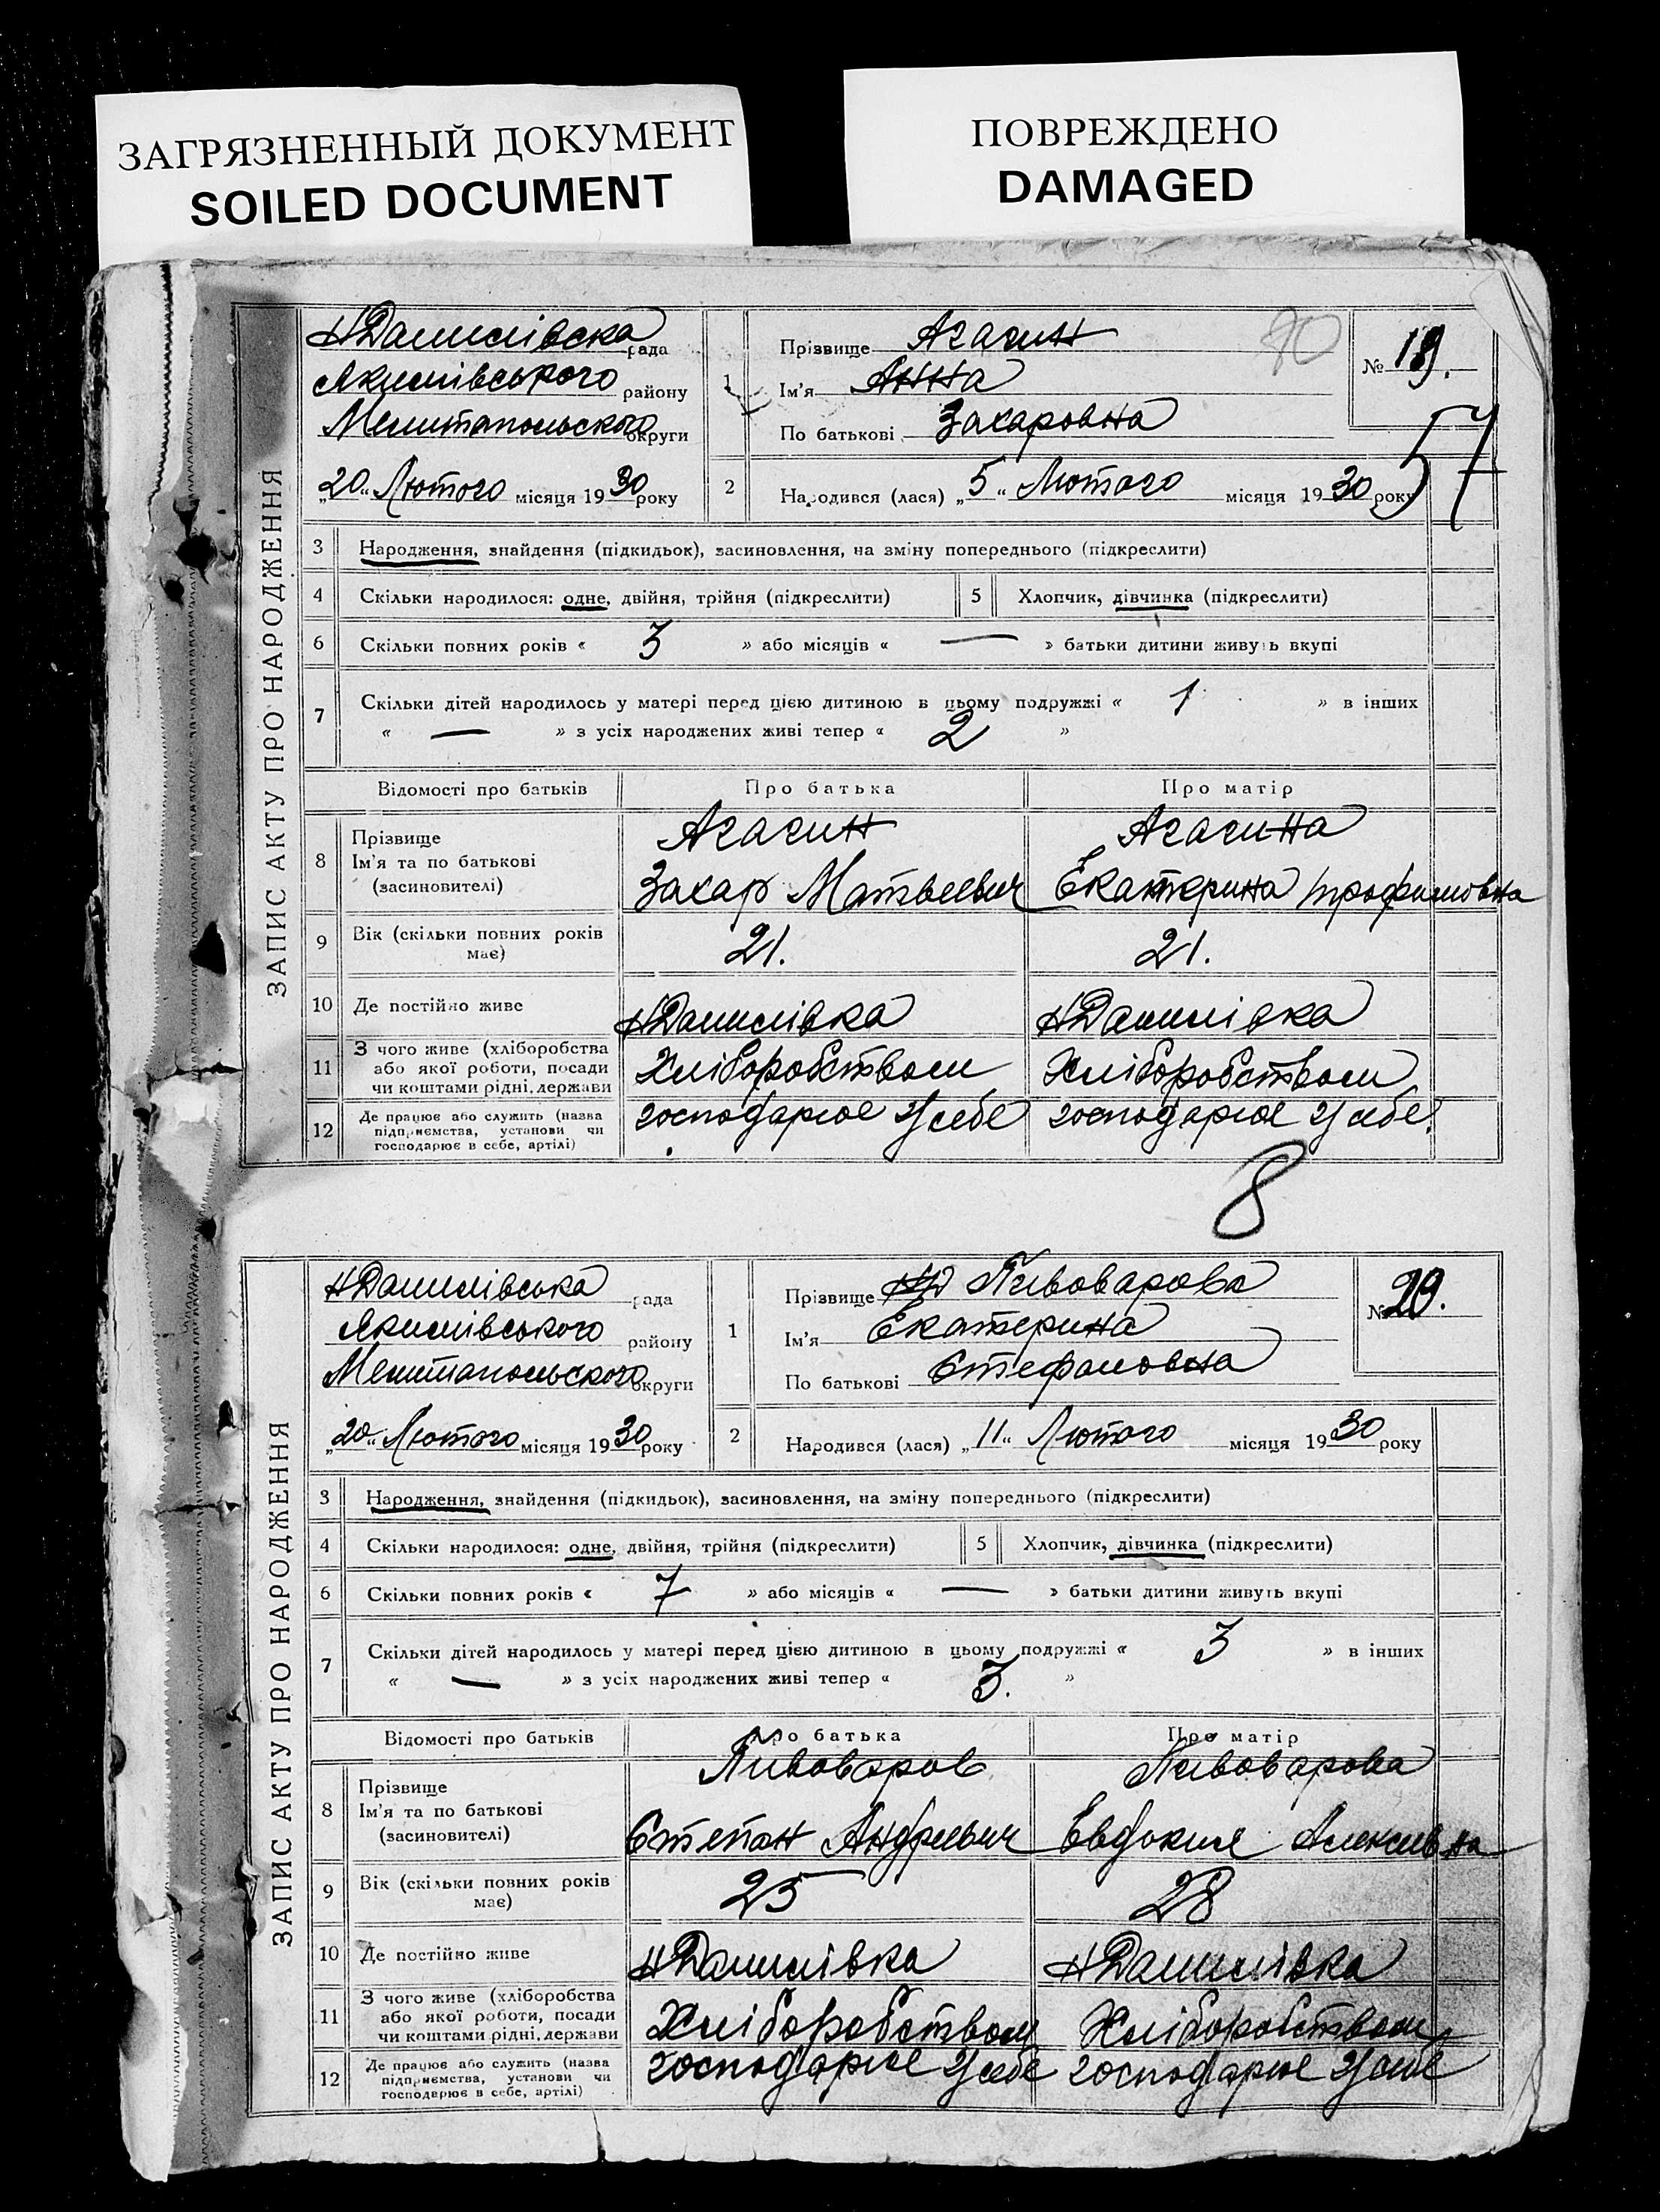 ЗАГРЯЗНЕННЫЙ ДОКУМЕНТ
SOILED DOCUMENT
ПОВРЕЖДЕНО
DAMAGED
ЗАПИС АКТУ ПРО НАРОДЖЕННЯ
НДанилівска рада
Якимівського району
Мелитопольского округи
„20“ Лютого місяця 1930 року
1
Прізвище Агагин
70
Ім'я Анна
По батькові Захаровна
№ 19.
57
2 Народився (лася) „5“ Лютого місяця 1930 року
3 Народження, знайдення (підкидьок), засиновлення, на зміну попереднього (підкреслити)
4 Скільки народилося: одне, двійня, трійня (підкреслити) 5 Хлопчик, дівчинка (підкреслити)
6 Скільки повних років « 3 » або місяців « — » батьки дитини живуть вкупі
7 Скільки дітей народилось у матері перед цією дитиною в цьому подружжі « 1 » в інших
« — » з усіх народжених живі тепер « 2 »
Відомості про батьків Про батька Про матір
8 Прізвище
Ім'я та по батькові
(засиновителі)
Агагин
Захар Матвеевич
Агагина
Екатерина Трофимовна
9 Вік (скільки повних років має) 21. 21.
10 Де постійно живе НДанилівка НДанилівка
11 З чого живе (хліборобства
або якої роботи, посади
чи коштами рідні, держави
Хліборобством Хліборобством
12 Де працює або служить (назва
підприємства, установи чи
господарює в себе, артілі)
господарює у себе господарює у себе.
8
ЗАПИС АКТУ ПРО НАРОДЖЕННЯ
НДанилівська рада
Якимівського району
Мелитопольского округи
„20“ Лютого місяця 1930 року
1
Прізвище Пивоварова
Ім'я Екатерина
По батькові Стефановна
№ 20.
2 Народився (лася) „11“ Лютого місяця 1930 року
3 Народження, знайдення (підкидьок), засиновлення, на зміну попереднього (підкреслити)
4 Скільки народилося: одне, двійня, трійня (підкреслити) 5 Хлопчик, дівчинка (підкреслити)
6 Скільки повних років « 7 » або місяців « — » батьки дитини живуть вкупі
7 Скільки дітей народилось у матері перед цією дитиною в цьому подружжі « 3 » в інших
« — » з усіх народжених живі тепер « 3. »
Відомості про батьків Про батька Про матір
8 Прізвище
Ім'я та по батькові
(засиновителі)
Пивоваров
Степан Андреевич
Пивоварова
Евдокия Алексевна
9 Вік (скільки повних років має) 25 28
10 Де постійно живе НДанилівка НДанилівка
11 З чого живе (хліборобства
або якої роботи, посади
чи коштами рідні, держави
Хліборобством Хліборобством
12 Де працює або служить (назва
підприємства, установи чи
господарює в себе, артілі)
господарює у себе господарює у себе